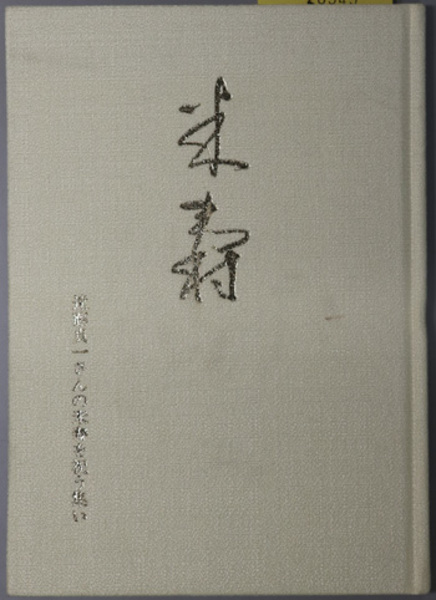 米寿
一さんの米寿を祝う集い